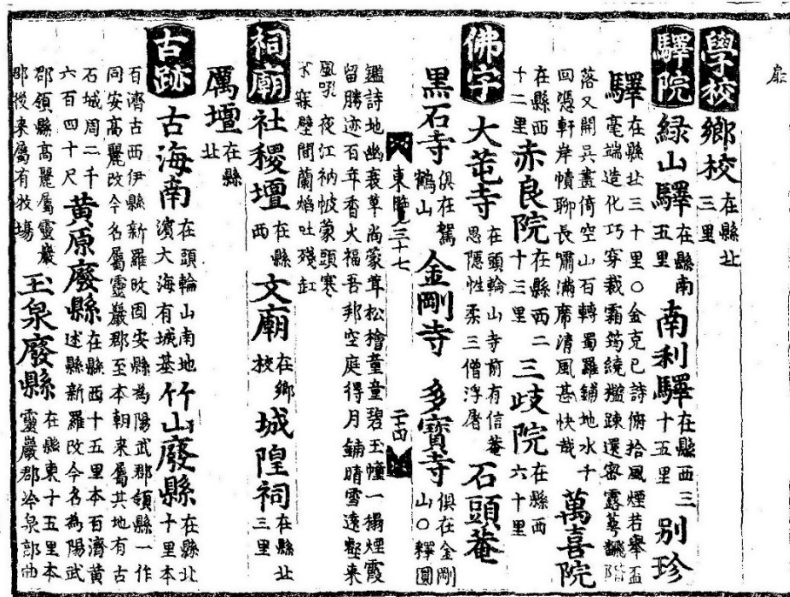 學校 鄕校 在縣北三里
驛院 綠山驛 在縣南五里 南利驛 在縣西三十五里 別珍
驛 在縣北三十里○金克己詩俯拾風煙若舉盃毫端造化巧穿裁霜筠繞檻踈還密露蔓翻階
落又開兵畫倚空山石轉蜀羅鋪地水千回憑軒岸幘聊長嘯滿席清風甚快哉 萬喜院
在縣西十二里 赤良院 在縣西二十三里 三歧院 在縣西六十里
佛宇 大芚寺 在頭輪山寺前有信菴思隱性柔三僧浮屠 石頭菴
黑石寺 俱在駕鶴山 金剛寺 多寶寺 俱在金剛山○釋圓
東覽三十七 二十四
鑑詩地幽衰草尚蒙茸松檜童童碧玉幢一榻煙霞留勝迹百年香火福吾邦空庭得月鋪晴雪遠壑來
風吼夜江衲帔蒙頭寒不寐壁間蘭焰吐殘缸
祠廟 社稷壇 在縣西 文廟 在鄕校 城隍祠 在縣北三里
厲壇 在縣北
古跡 古海南 在頭輪山南地濱大海有城基 竹山廢縣 在縣北十里本
百濟古西伊縣新羅改固安縣為陽武郡領縣一作同安高麗改今名屬靈巖郡至本朝來屬其地有古
石城周二千六百四十尺 黃原廢縣 在縣西十五里本百濟黃述縣新羅改今名為陽武
郡領縣高麗屬靈巖郡後來屬有牧場 玉泉廢縣 在縣東十五里本靈巖郡冷泉部曲